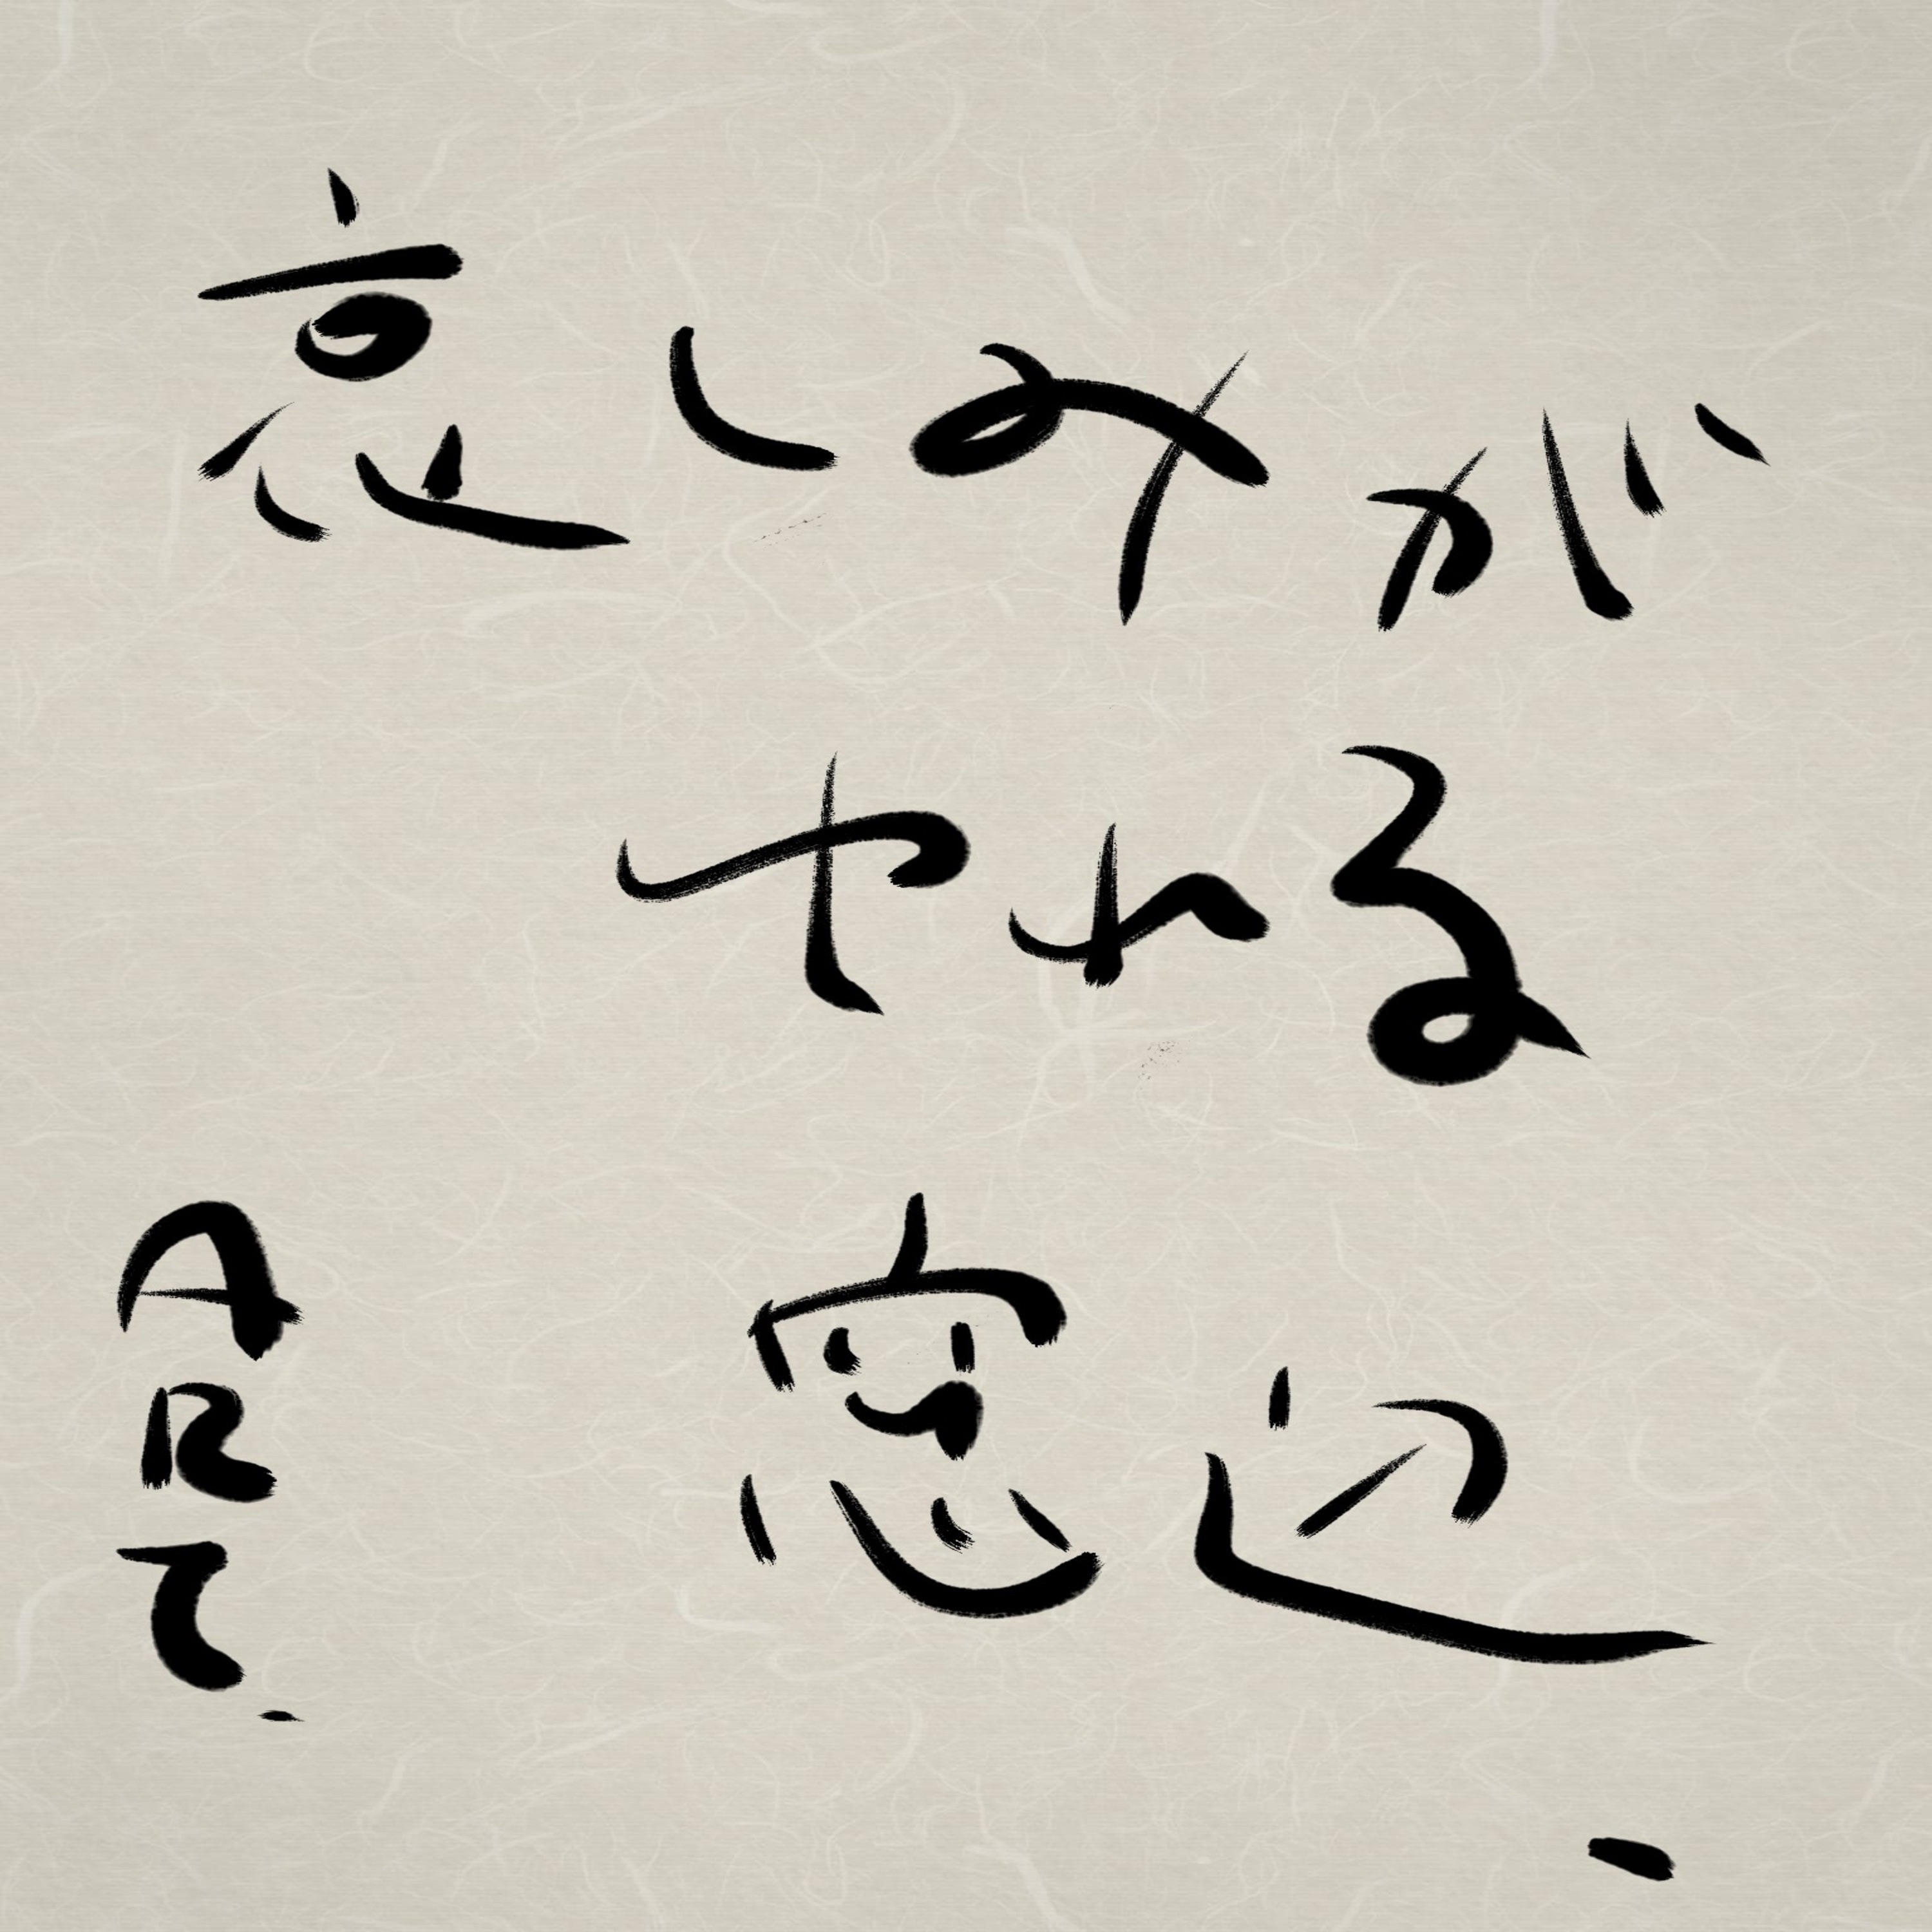 哀しみが
やれる
窓辺、
ARて.